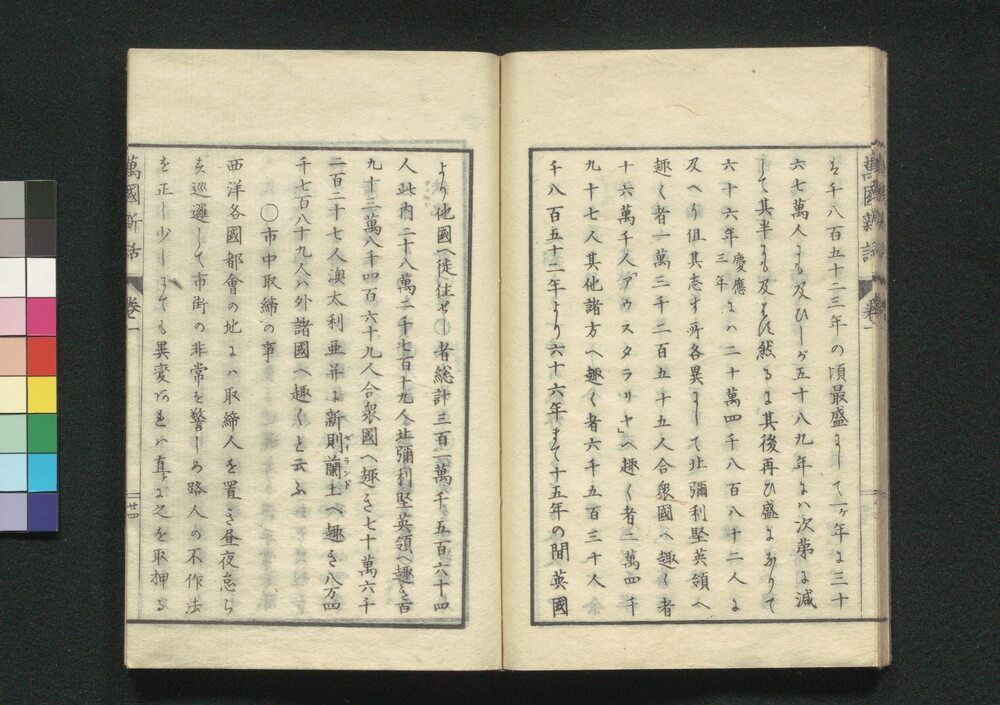 萬國新話
卷一
は千八百五十二三年の頃最盛にして一ヶ年に三十
六七萬人にも及ひしが五十八九年には次第に減
して其半にも及はす然るに其後再ひ盛になりて
六十六年慶應三年には二十萬四千八百八十二人に
及へり但其志す所各異にして北彌利堅英領へ
趣く者一萬三千二百五十五人合衆國へ趣く者
十六萬千人「アウスタラリヤ」へ趣く者二萬四千
九十七人其他諸方へ趣く者六千五百三十人余
千八百五十二年より六十六年まて十五年の間英國
より他國へ徙住せし者総計三百一萬千五百六十四
人此内二十八萬二千七百十九人北彌利堅英領へ趣き百
九十三萬八千四百六十九人合衆國へ趣き七十萬六千
二百二十七人澳太利亜并に新則蘭土へ趣き八万四
ゼイランド
千七百八十九人は外諸國へ趣くと云ふ
〇市中取締の事
西洋各國都會の地には取締人を置き昼夜怠ら
す巡邏して市街の非常を警しめ路人の不作法
を正し少しにても異変あれは真に之を取押る
萬國新話
卷一
廿四